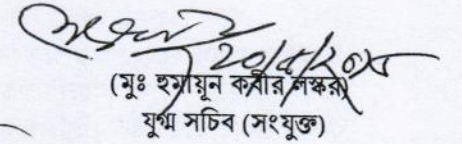 ২০/৫/২০১৮
(মুঃ হুমায়ূন কবীর লস্কর)
যুগ্ম সচিব (সংযুক্ত)